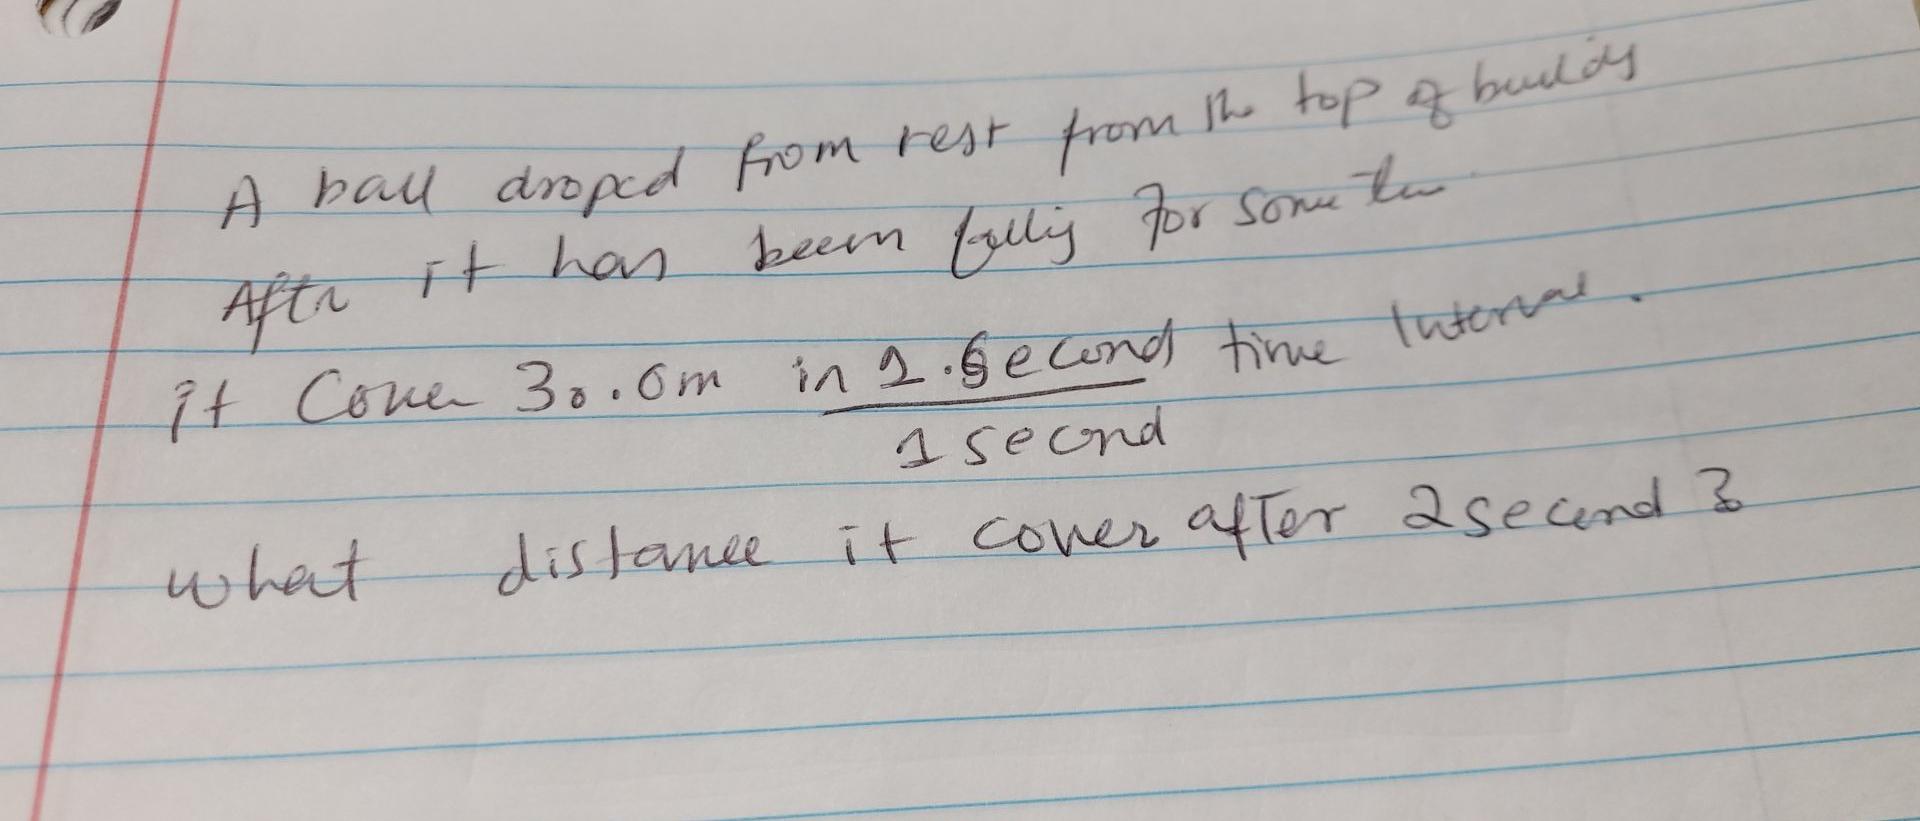 A ball droped from rest from the top of
After it has been falling for some
it Cover 30.0m in 1.second time Interval.
1 second
what distance it cover after 2 second ?